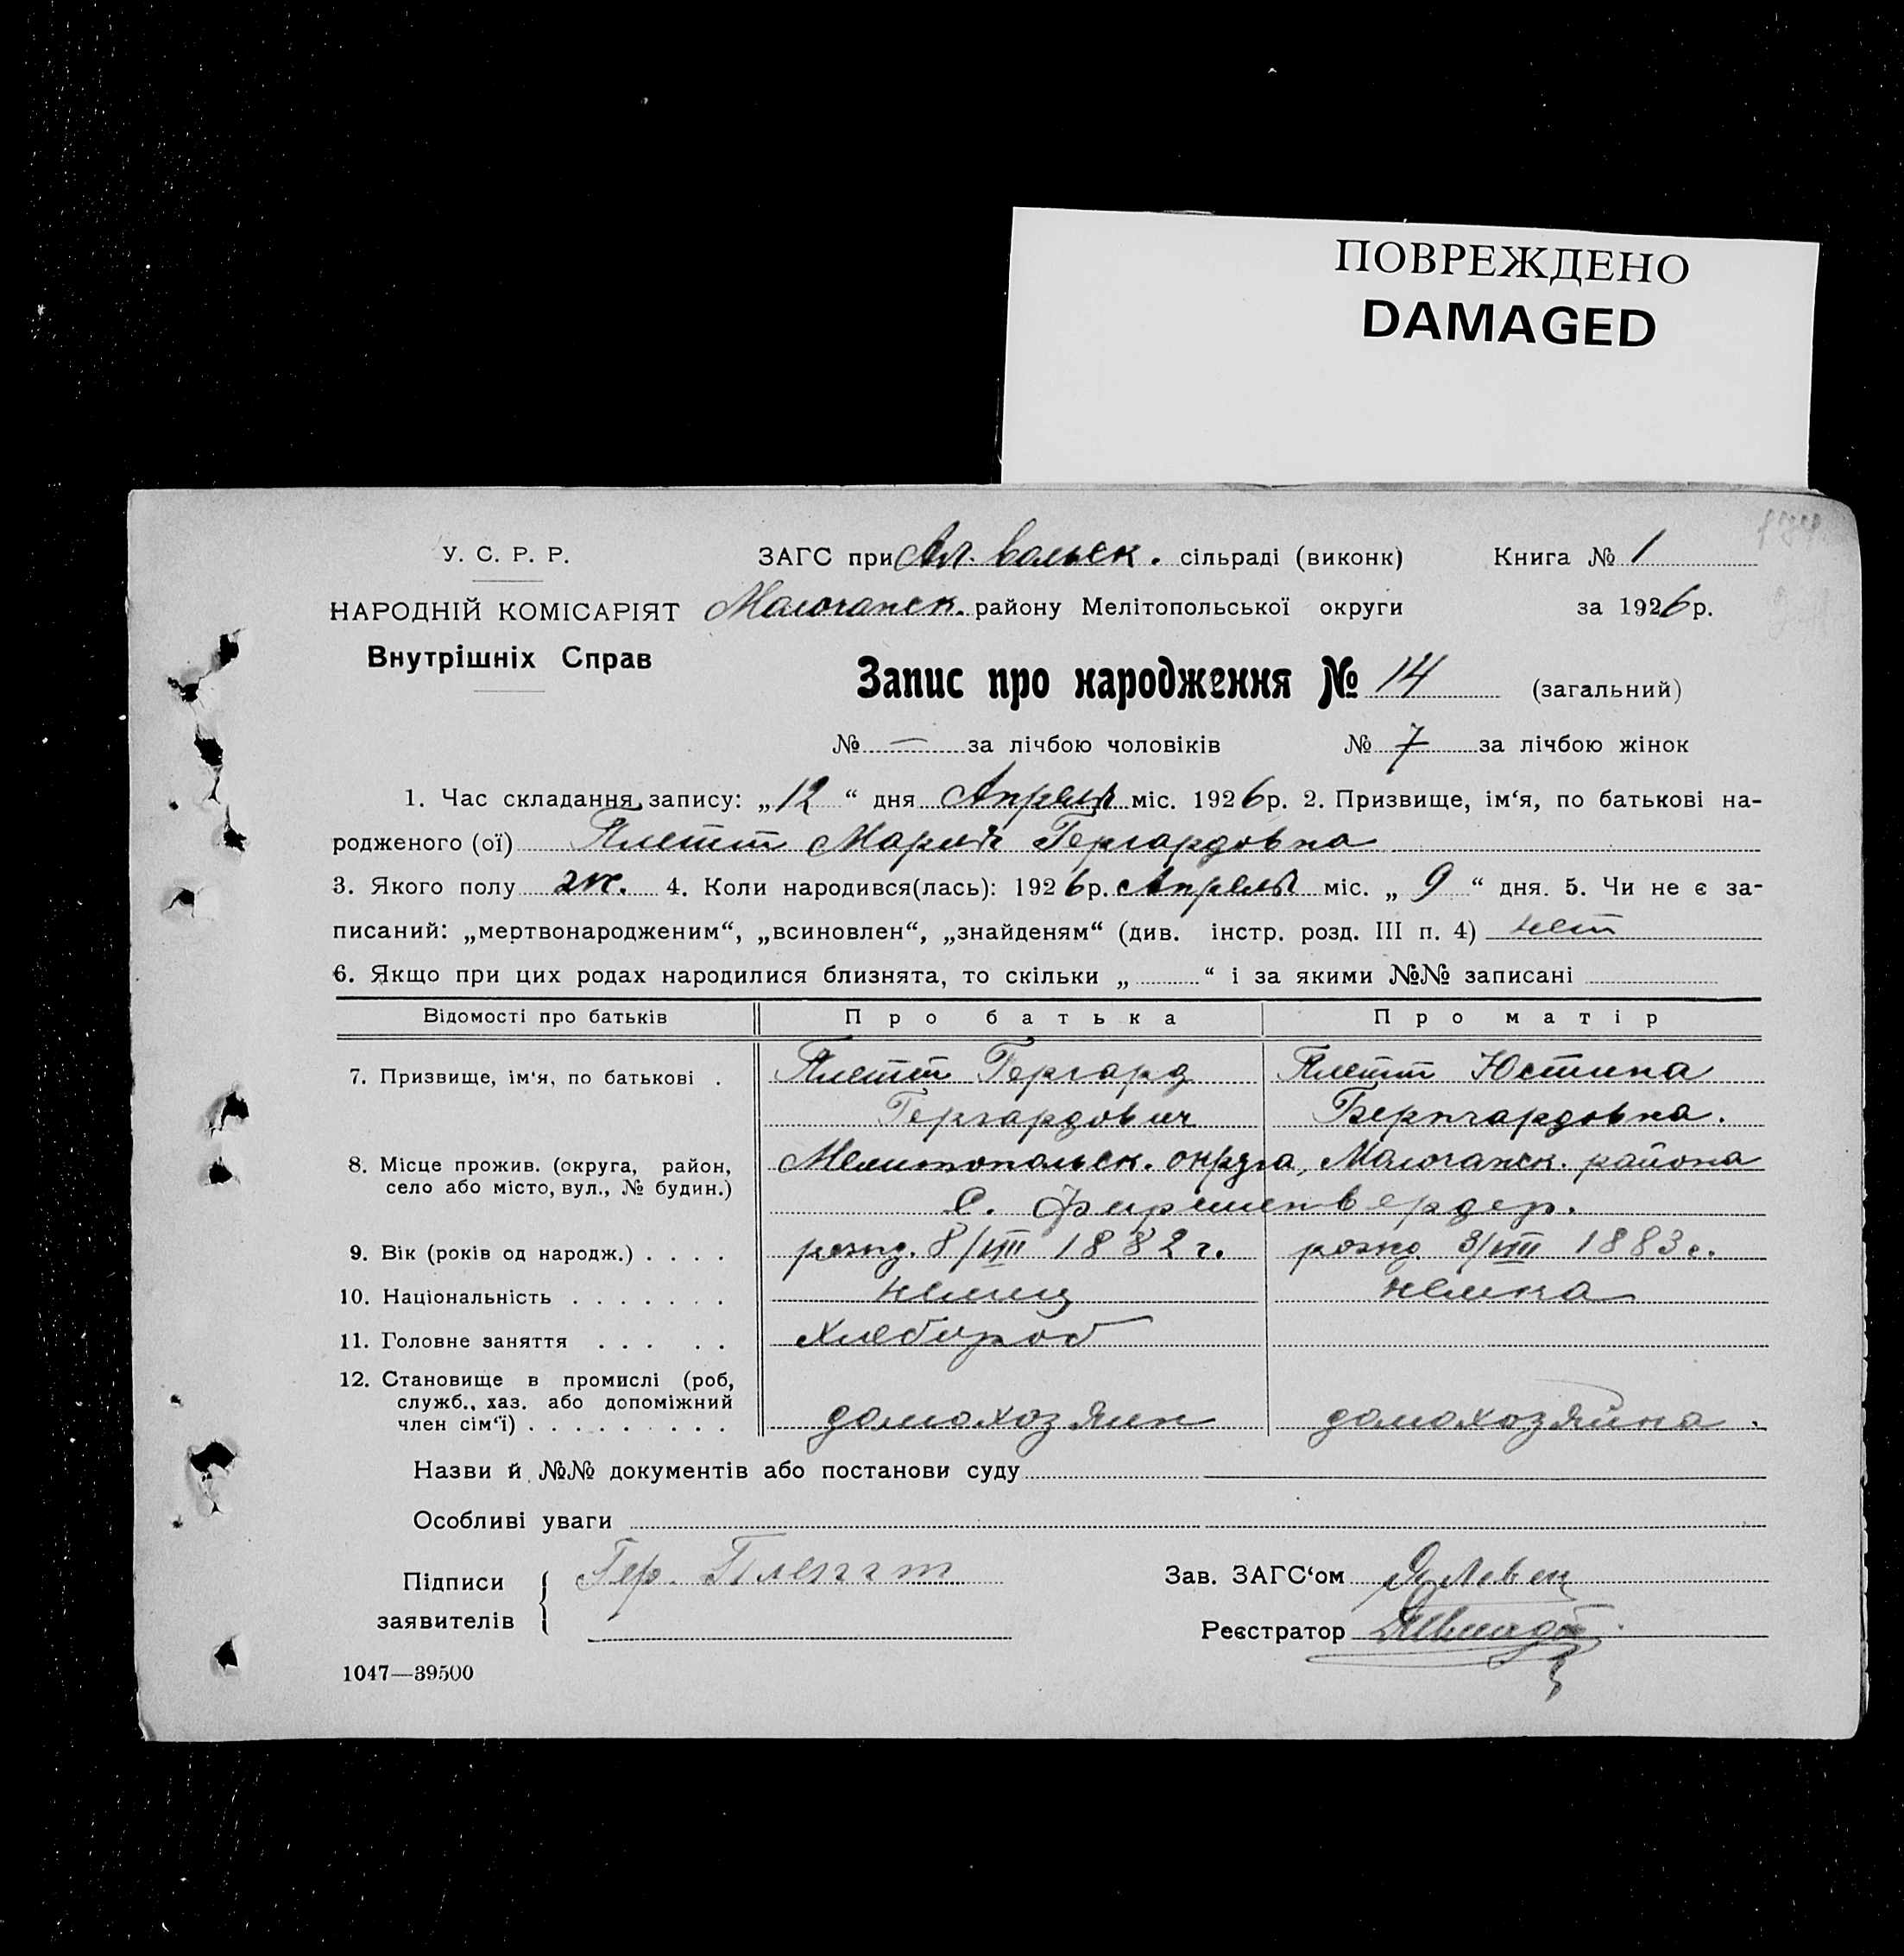 ПОВРЕЖДЕНО
DAMAGED
У. С. Р. Р. ЗАГС при Ал. вольск. сільраді (виконк) Книга № 1
НАРОДНІЙ КОМІСАРІЯТ Молочанск. району Мелітопольської округи за 1926 р.
Внутрішніх Справ
Запис про народження № 14 (загальний)
№ — за лічбою чоловіків № 7 за лічбою жінок
1. Час складання запису: „12“ дня Апреля міс. 1926 р. 2. Призвище, ім‘я, по батькові на-
родженого (ої) Плетт Мария Гергардовна
3. Якого полу ж. 4. Коли народився(лась): 1926 р. Апреля міс. „9“ дня. 5. Чи не є за-
писаний: „мертвонародженим“, „всиновлен“, „знайденям“ (див. інстр. розд. III п. 4) нет
6. Якщо при цих родах народилися близнята, то скільки „ “ і за якими №№ записані
Відомості про батьків Про батька Про матір
7. Призвище, ім‘я, по батькові . Плетт Гергард Плетт Юстина
Гергардович Бернгардовна.
8. Місце прожив. (округа, район, Мелитопольск. округа, Молочанск. района
село або місто, вул., № будин.) с. Фирстенвердер.
9. Вік (років од народж.) . . . . рожд. 8/VIII 1882 г. рожд. 3/VIII 1883 г.
10. Національність . . . . . . . немец немка
11. Головне заняття . . . . . хлебороб
12. Становище в промислі (роб,
служб., хаз. або допоміжний
член сім‘ї) . . . . . . . . . домохозяин домохозяйна.
Назви й №№ документів або постанови суду
Особливі уваги
Підписи Гер. Плетт Зав. ЗАГС‘ом
заявителів Реєстратор
1047—39500